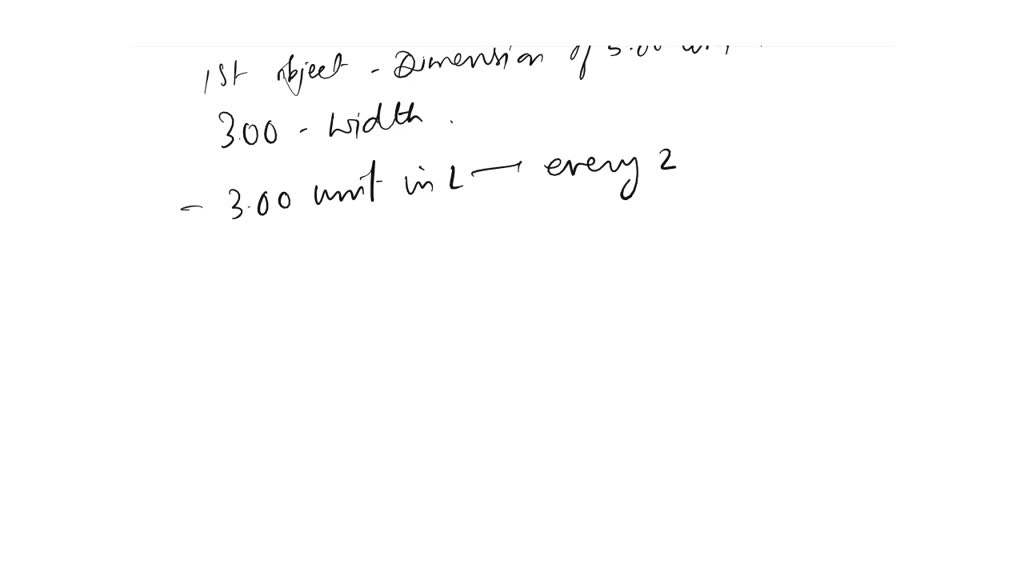 1st object - Dimension of 5.00
3.00 - width .
- 3.00 unit in L — every 2